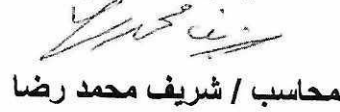 محاسب / شريف محمد رضا